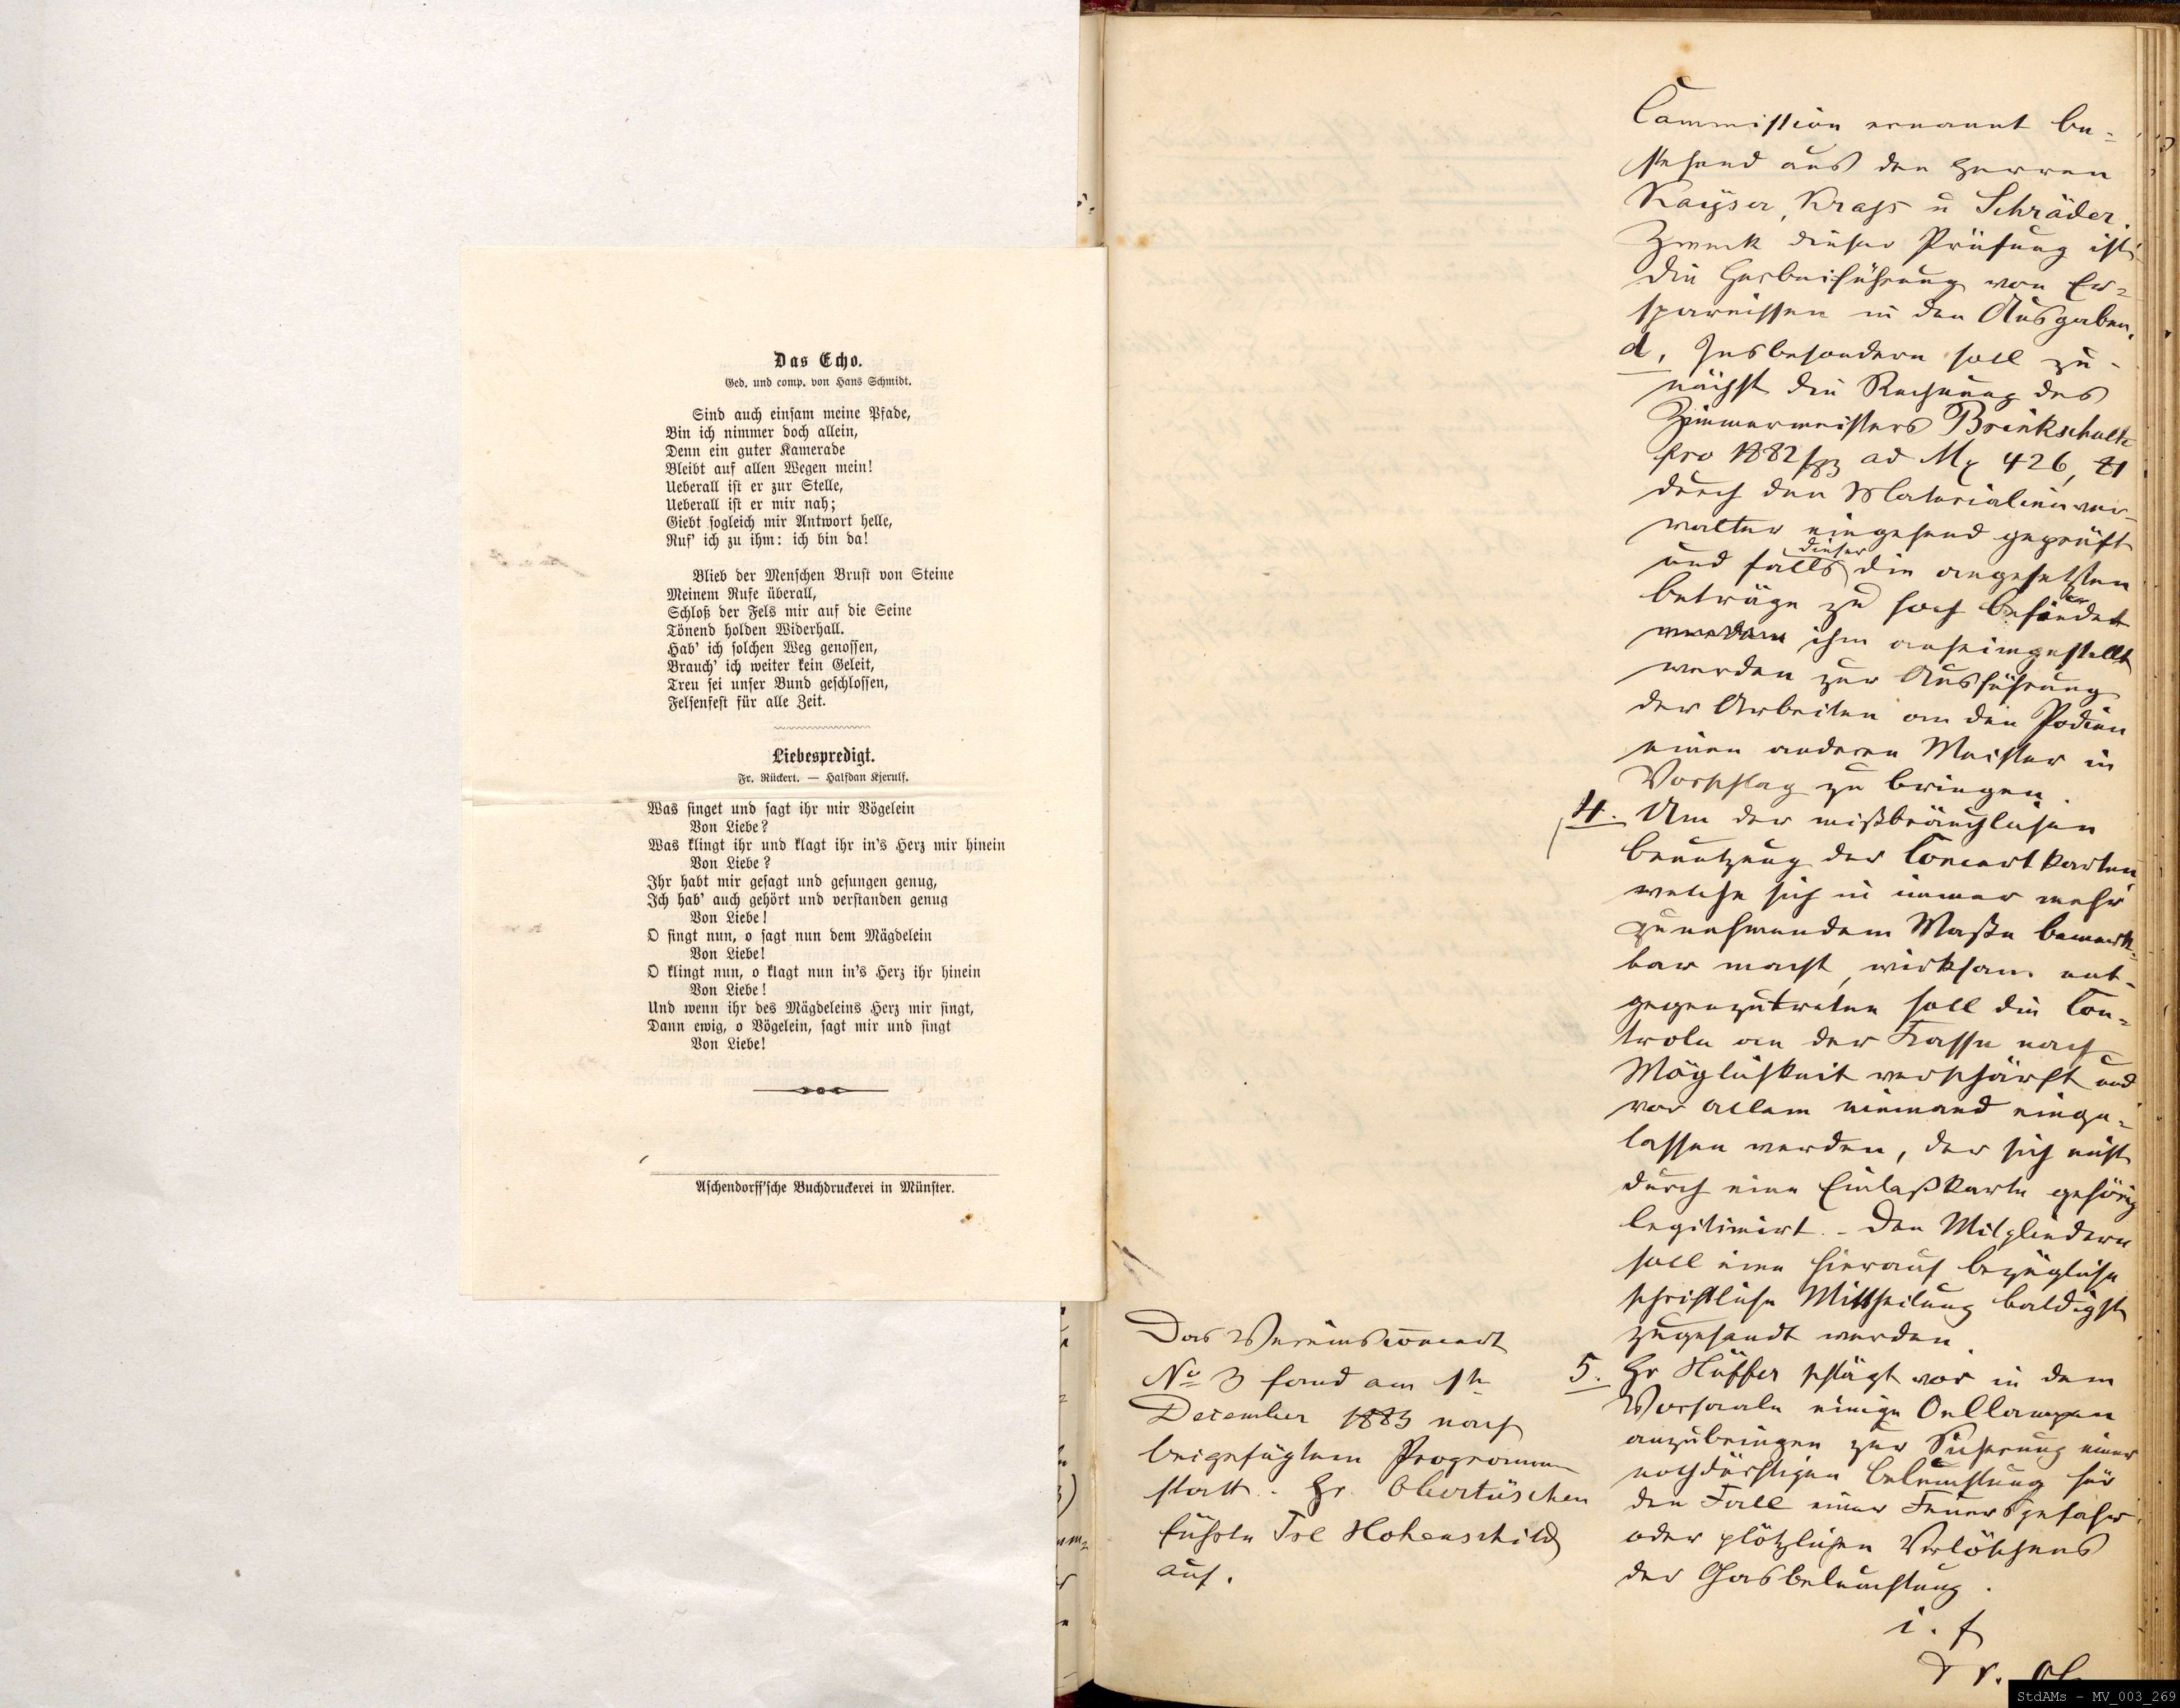 Das Echo.
Ged. und comp. von Hans Schmidt.
Sind auch einsam meine Pfade,
Bin ich nimmer doch allein,
Denn ein guter Kamerade
Bleibt auf allen Wegen mein!
Ueberall ist er zur Stelle,
Ueberall ist er mir nah;
Giebt sogleich mir Antwort helle,
Ruf' ich zu ihm: ich bin da!
Blieb der Menschen Brust von Steine
Meinem Rufe überall,
Schloß der Fels mir auf die Seine
Tönend holden Widerhall.
Hab' ich solchen Weg genossen,
Brauch' ich weiter kein Geleit,
Treu sei unser Bund geschlossen,
Felsenfest für alle Zeit.
Liebespredigt.
Fr. Rückert. — Halfdan Kjerulf.
Was singet und sagt ihr mir Vögelein
Von Liebe?
Was klingt ihr und klagt ihr in's Herz mir hinein
Von Liebe?
Ihr habt mir gesagt und gesungen genug,
Ich hab' auch gehört und verstanden genug
Von Liebe!
O singt nun, o sagt nun dem Mägdelein
Von Liebe!
O klingt nun, o klagt nun in's Herz ihr hinein
Von Liebe!
Und wenn ihr des Mägdeleins Herz mir singt,
Dann ewig, o Vögelein, sagt mir und singt
Von Liebe!
Aschendorff'sche Buchdruckerei in Münster.
Das Vereinsconcert
No 3 fand am 1ten
December 1883 nach
beigefügtem Programm
statt. Hr. Obertüschen
führte Frl Hohenschild
auf.
Commission ernannt be=
stehend aus den Herren
Kayser, Krass u Schräder.
Zweck dieser Prüfung ist
die Herbeiführung von Er=
sparnissen in den Ausgaben.
d, Insbesondere soll zu-
nächst die Rechnung des
Zimmermeisters Brinkschulte
pro 1882/83 ad Mk 426, 81
durch den Materialienver-
walter eingehend geprüft
und falls dieser die angesetzten
Beträge zu hoch befindet
ihm anheimgestellt
werden zur Ausführung
der Arbeiten an den Podien
einen anderen Meister in
Vorschlag zu bringen.
4. Um der mißbräuchlichen
Benutzung der Concertkarten,
welche sich in immer mehr
zunehmendem Maße bemerk=
bar macht, wirksam ent-
gegenzutreten soll die Con=
trole an der Kasse nach
Möglichkeit verschärft und
vor allem niemand einge=
lassen werden, der sich nicht
durch eine Einlaßkarte gehörig
legitimirt. - Den Mitgliedern
soll eine hierauf bezügliche
schriftliche Mittheilung baldigst
zugesandt werden.
5. Hr Hüffer schlägt vor in dem
Vorsaale einige Oellampen
anzubringen zur Sicherung einer
nothdürftigen Beleuchtung für
den Fall einer Feuersgefahr
oder plötzlichen Verlöschens
der Gasbeleuchtung.
i. f
StdAMs - MV_003_269